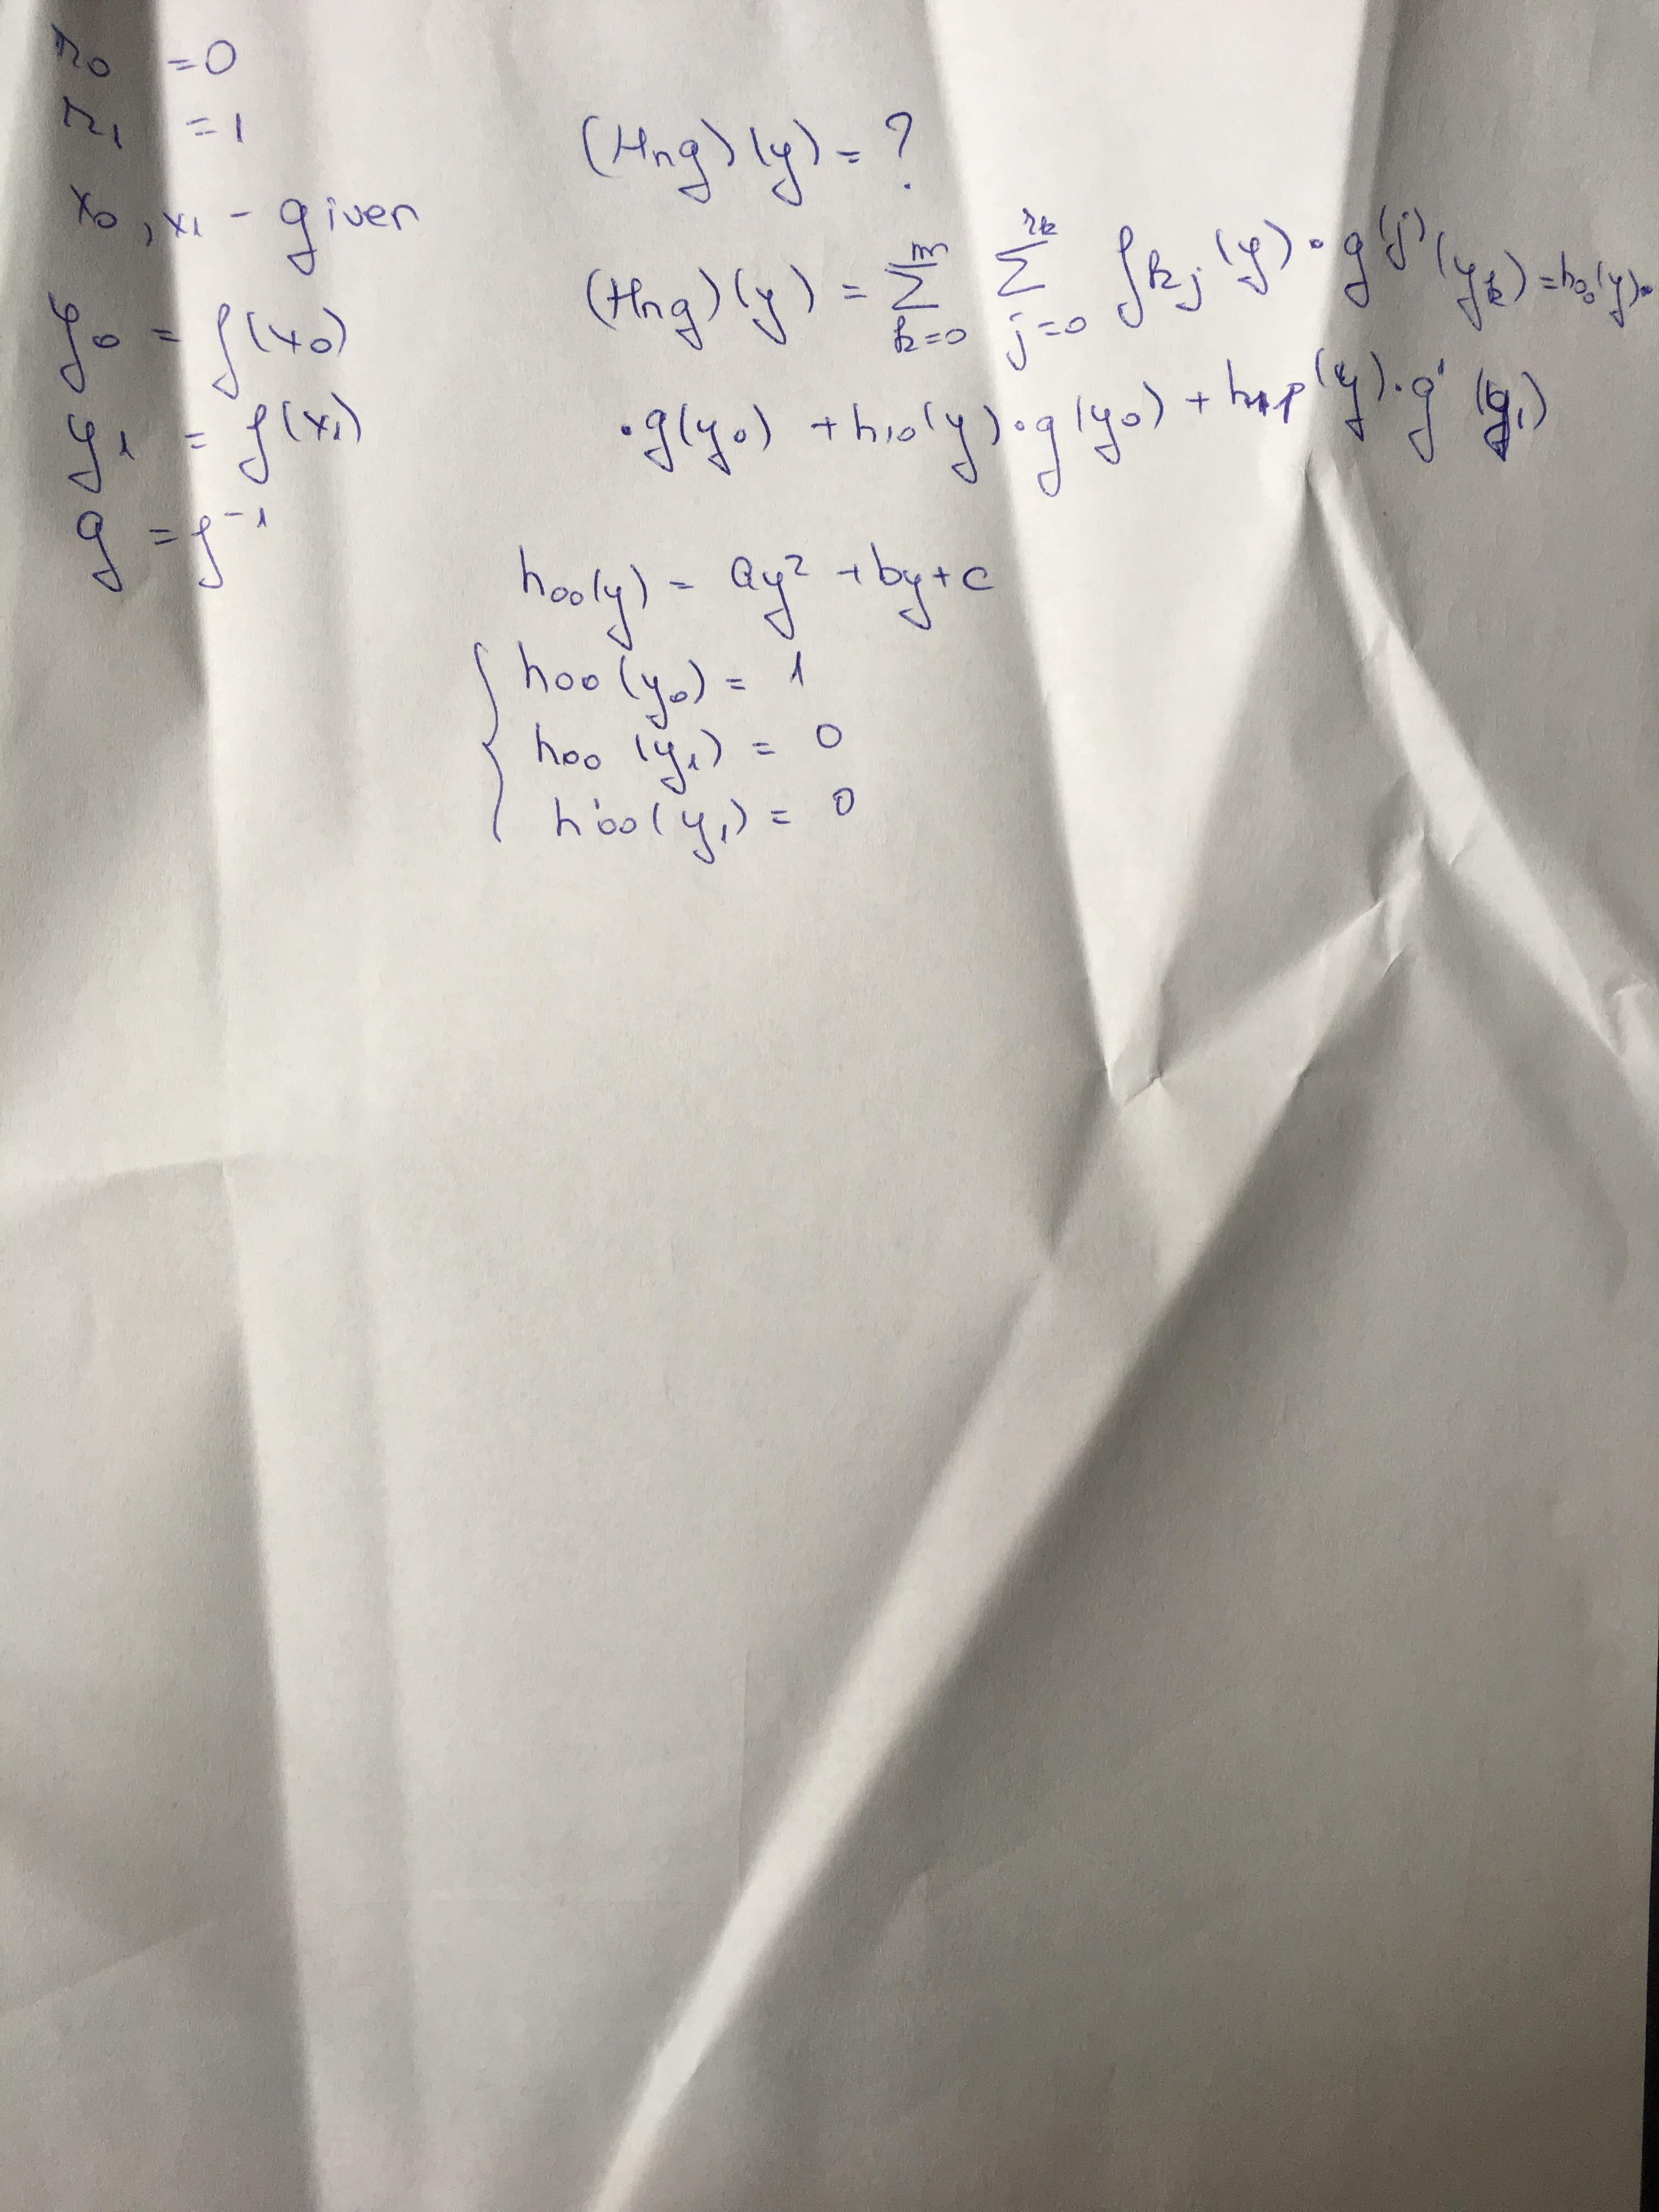 r₀ = 0
r₁ = 1
x₀, x₁ - given
y₀ = f(x₀)
y₁ = f(x₁)
g = f⁻¹
(Hng)(y) = ?
(Hng)(y) = Σ_{k=0}^{m} Σ_{j=0}^{r_k} f_{kj}(y) · g^{(j)}(y_k) = h₀₀(y) ·
· g(y₀) + h₁₀(y) · g(y₀) + h₁₁(y) · g'(y₁)
h₀₀(y) = ay² + by + c
h₀₀(y₀) = 1
h₀₀(y₁) = 0
h'₀₀(y₁) = 0